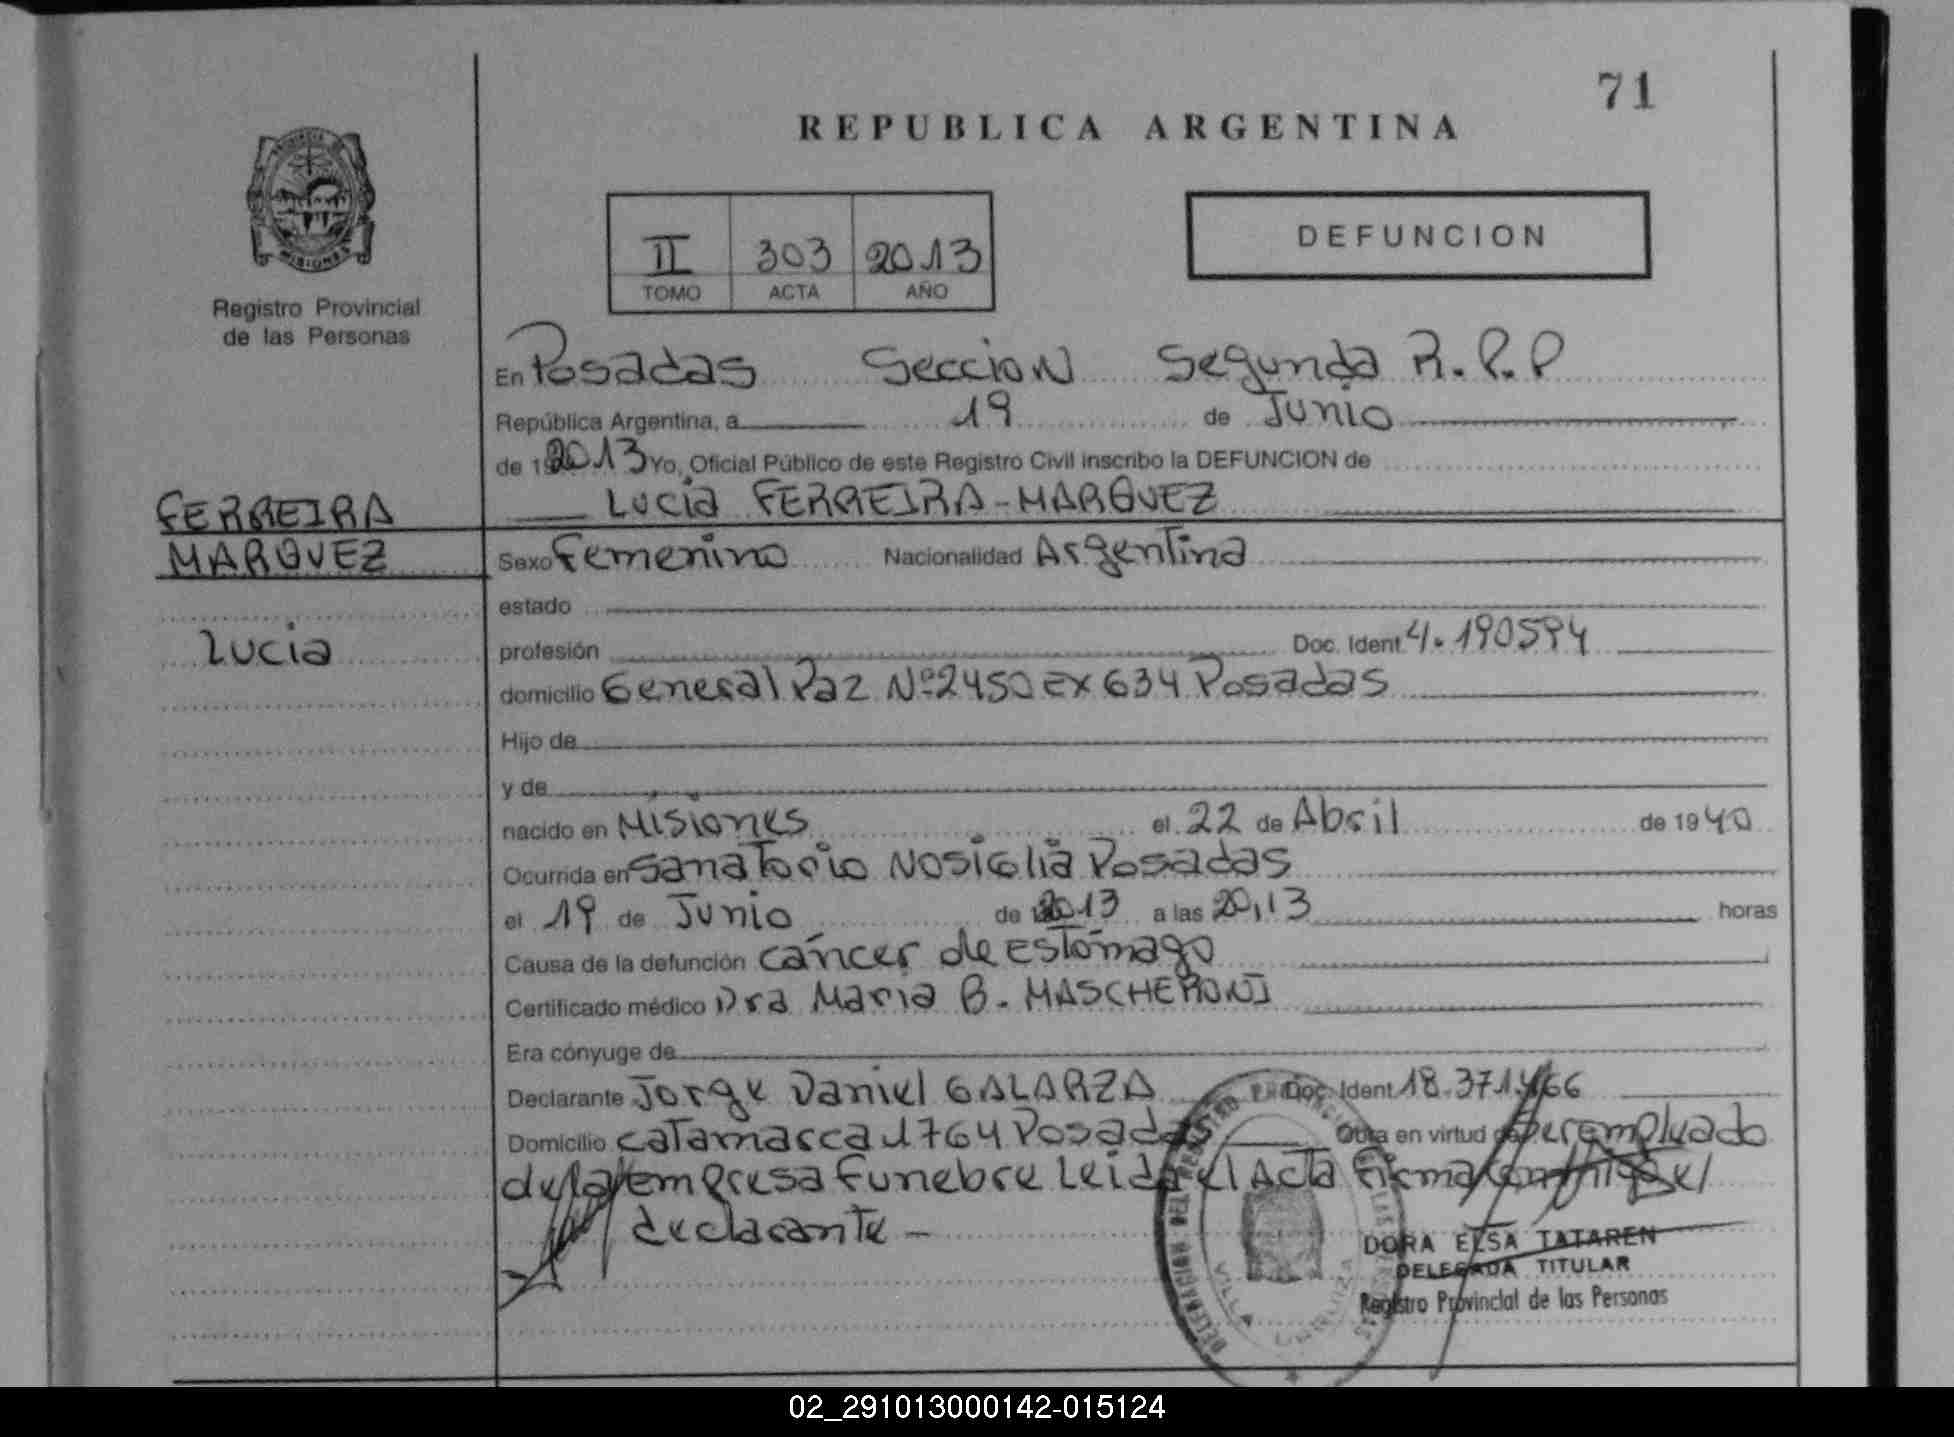 71
REPUBLICA ARGENTINA
PROVINCIA DE
MISIONES
Registro Provincial
de las Personas
II 303 2013
TOMO ACTA AÑO
DEFUNCION
En Posadas Seccion Segunda R.P.P
República Argentina, a 19 de Junio
de 2013 Yo, Oficial Público de este Registro Civil inscribo la DEFUNCION de
Lucia FERREIRA-MARQUEZ
FERREIRA
MARQUEZ
Lucia
Sexo Femenino Nacionalidad Argentina
estado
profesión Doc. Ident 4.190594
domicilio General Paz Nº 2450 EX 634 Posadas
Hijo de
y de
nacido en Misiones el 22 de Abril de 1940
Ocurrida en Sanatorio Nosiglia Posadas
el 19 de Junio de 2013 a las 20,13 horas
Causa de la defunción cáncer de Estómago
Certificado médico Dra Maria B. MASCHERONI
Era cónyuge de
Declarante Jorge Daniel GALARZA Doc. Ident 18.371.466
Domicilio catamarca 1764 Posadas Obra en virtud de ser empleado
de la empresa Funebre Leida el Acta Firma conmigo el
declarante -
DELEGACION DEL REGISTRO PROVINCIAL DE LAS PERSONAS
VILLA URQUIZA
DORA ELSA TATAREN
DELEGADA TITULAR
Registro Provincial de las Personas
02_291013000142-015124